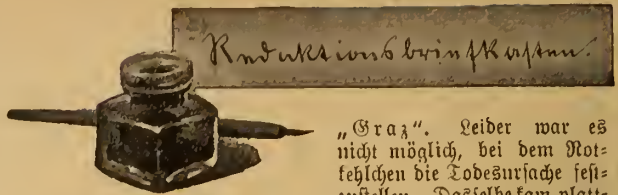 Redaktionsbriefkasten.
„Graz“. Leider war es
nicht möglich, bei dem Rot=
kehlchen die Todesursache fest=
zustellen. Dasselbe kam platt=